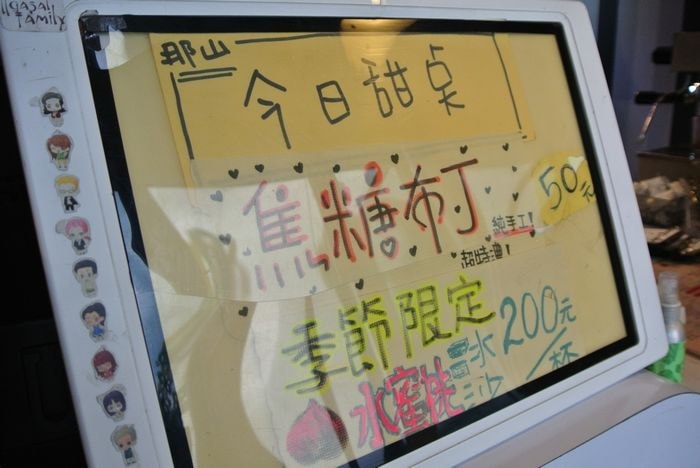 那山
今日甜桌
焦糖布丁
50元
純手工!
超時滑!
季節限定
水蜜桃冰沙
200元/杯
family